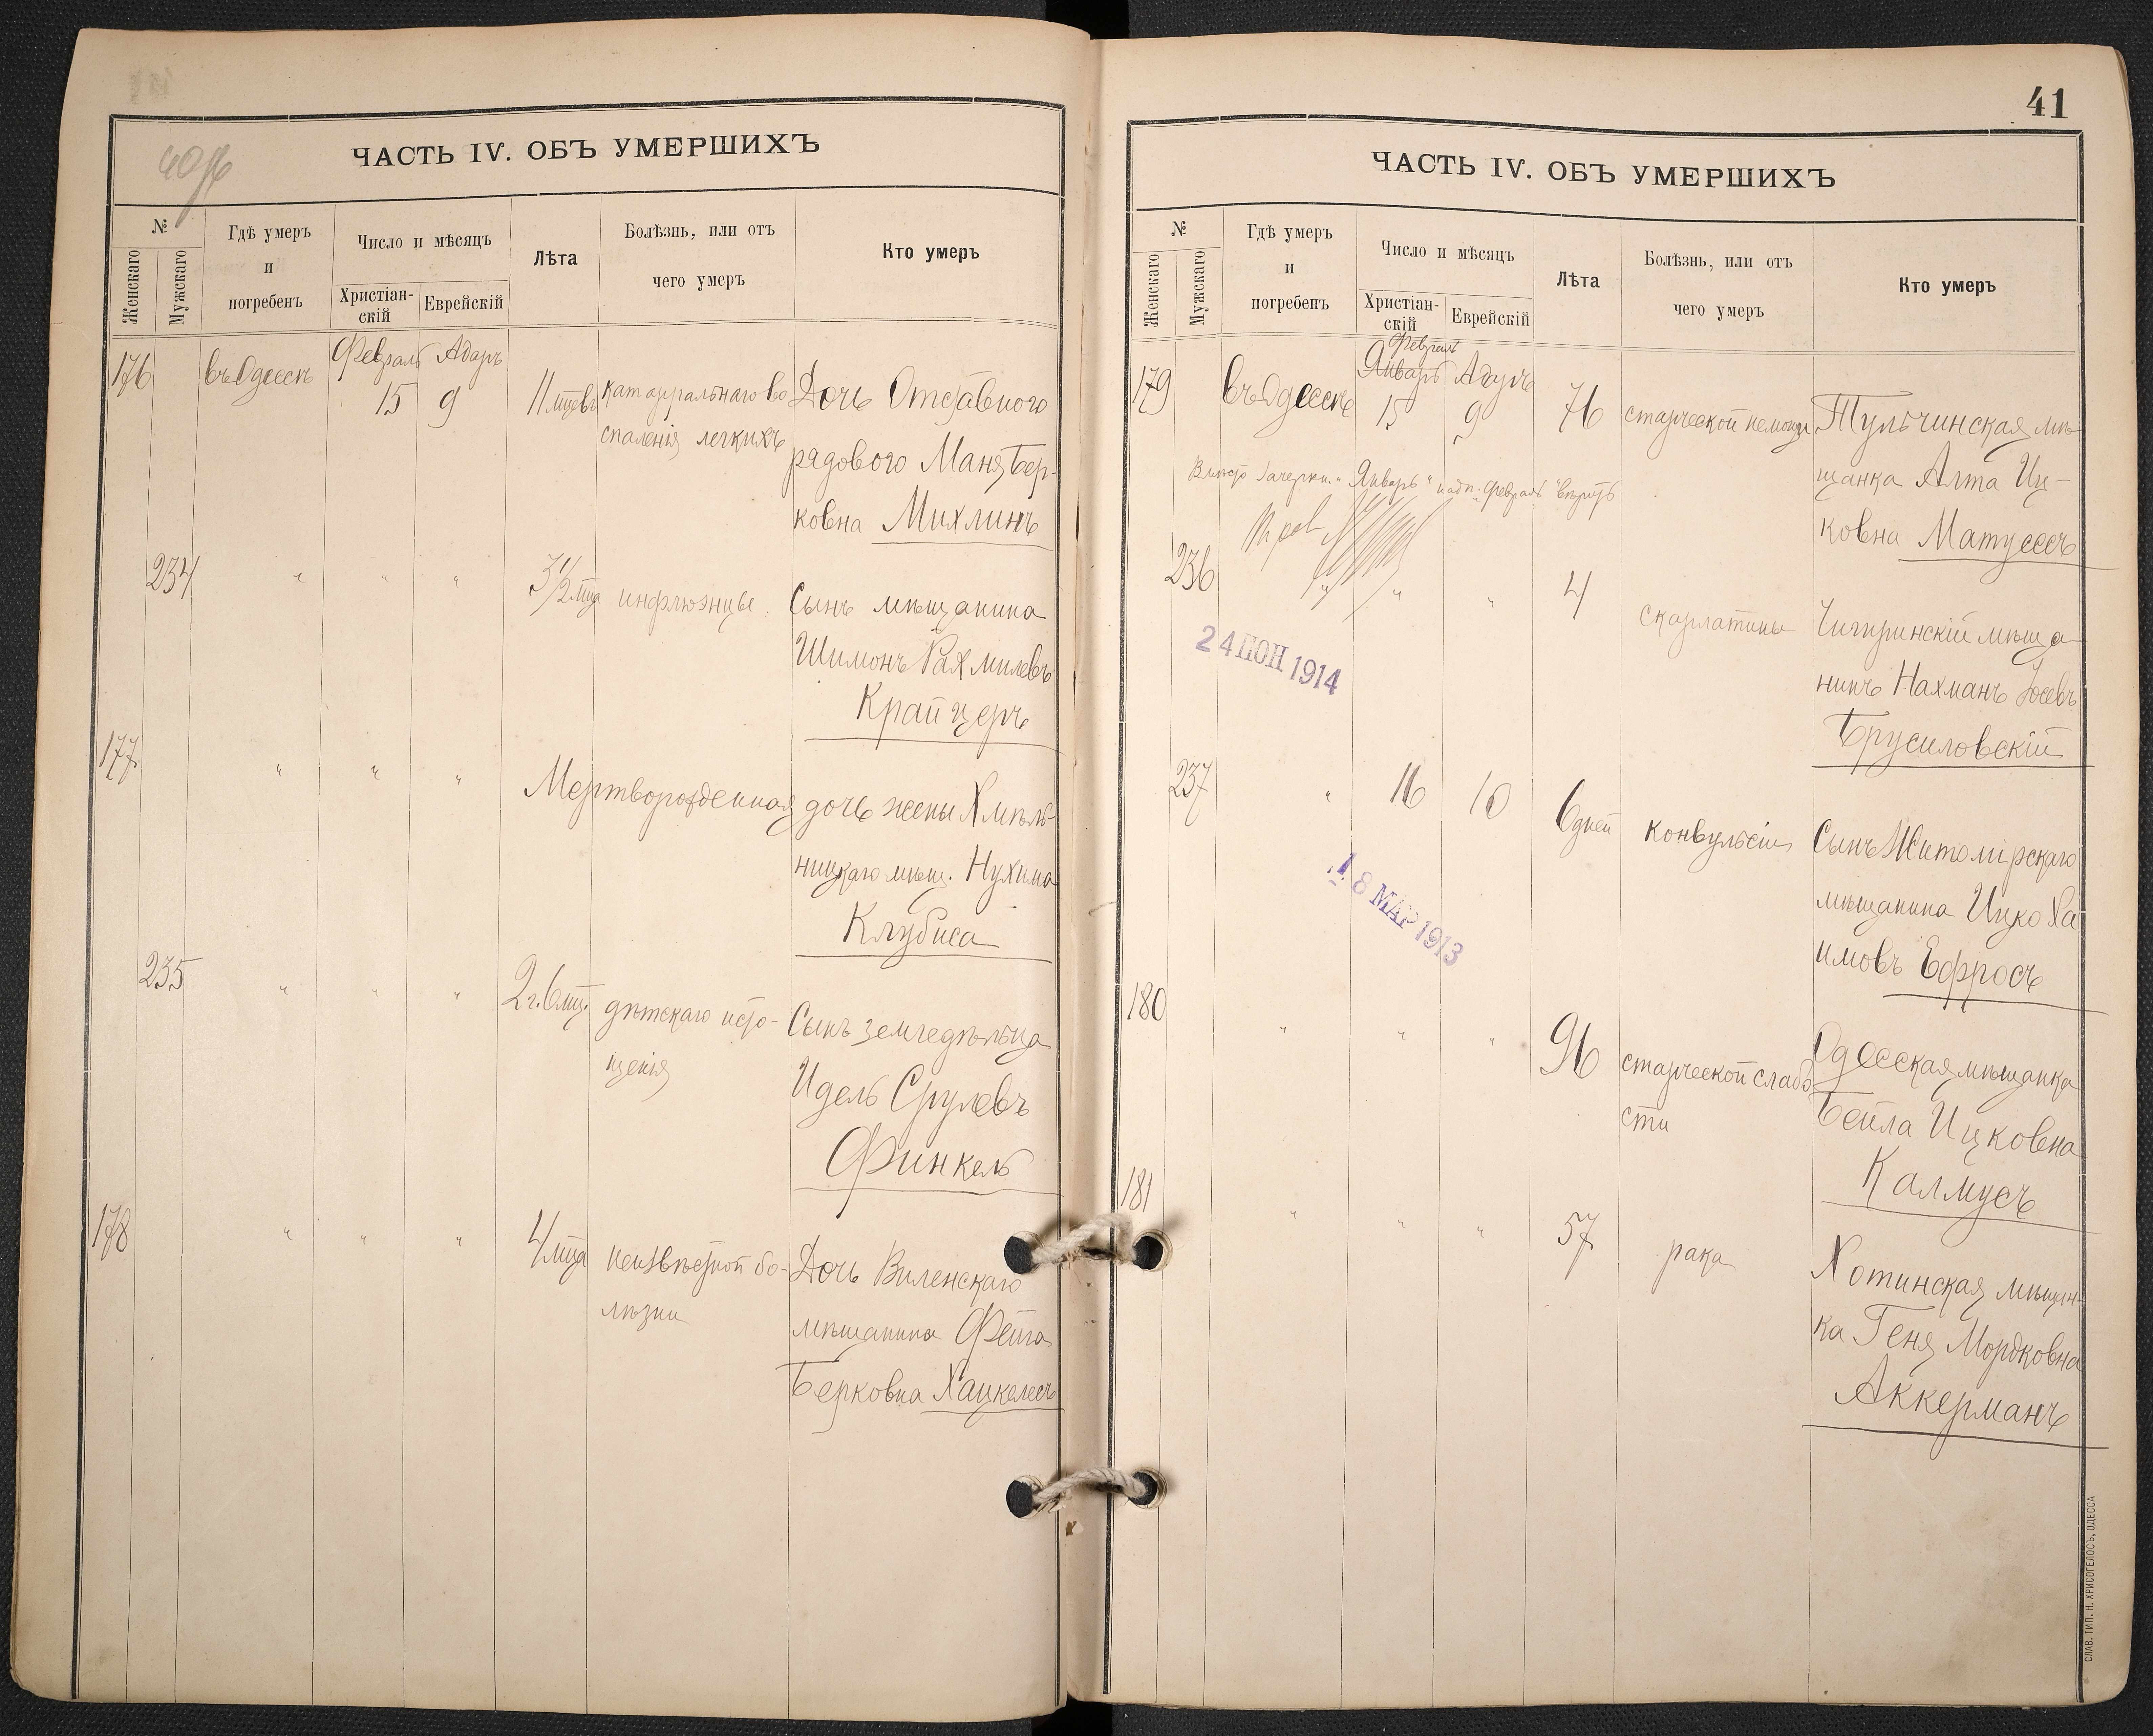 40об
ЧАСТЬ IV. ОБЪ УМЕРШИХЪ
№
Женскаго
Мужскаго
Гдѣ умеръ
и
погребенъ
Число и мѣсяцъ
Христіан-
скій
Еврейскій
Лѣта
Болѣзнь, или отъ
чего умеръ
Кто умеръ
176 въ Одессѣ Февраль 15 Адаръ 9 11 мцевъ катаррального во
спаленія легкихъ
Дочь Отставного
рядового Маня Бер-
ковна Михлинъ
234 " " " 3 1/2 мца инфлюэнцы
Сынъ мѣщанина
Шимонъ Рахмилевъ
Крайцеръ
177 " " " Мертворожденная дочь жены Хмѣль-
ницкаго мѣщ. Нухима
Клубиса
235 " " " 2 г. 6 мц. дѣтскаго исто-
щенія
Сынъ земледѣльца
Идель Срулевъ
Финкель
178 " " " 4 мца неизвѣстной бо-
лѣзни
Дочь Виленскаго
мѣщанина Фейга
Берковна Хацкелесъ
41
ЧАСТЬ IV. ОБЪ УМЕРШИХЪ
№
Женскаго
Мужскаго
Гдѣ умеръ
и
погребенъ
Число и мѣсяцъ
Христіан-
скій
Еврейскій
Лѣта
Болѣзнь, или отъ
чего умеръ
Кто умеръ
Февраль
179 въ Одессѣ Январь 15 Адаръ 9 76 старческой немощи
Тульчинская мѣ-
щанка Алта Иц-
ковна Матусесъ
Вмѣсто зачеркн. "Январь" надп. "Февраль" вѣрить
236 " " " 4 скарлатины
Чигиринскій мѣща
нинъ Нахманъ Іосевъ
Брусиловскій
24 ІЮН 1914
237 " 16 10 6 дней конвульсіи
Сынъ Житомірскаго
мѣщанина Ицко Ха
имовъ Ефросъ
18 МАР 1913
180 " " " 96 старческой слабо
сти
Одесская мѣщанка
Бейла Ицковна
Калмусъ
181 " " " 57 рака
Хотинская мѣщан-
ка Геня Мордковна
Аккерманъ
СЛАВ. ТИП. Н. ХРИСОГЕЛОСЪ, ОДЕССА